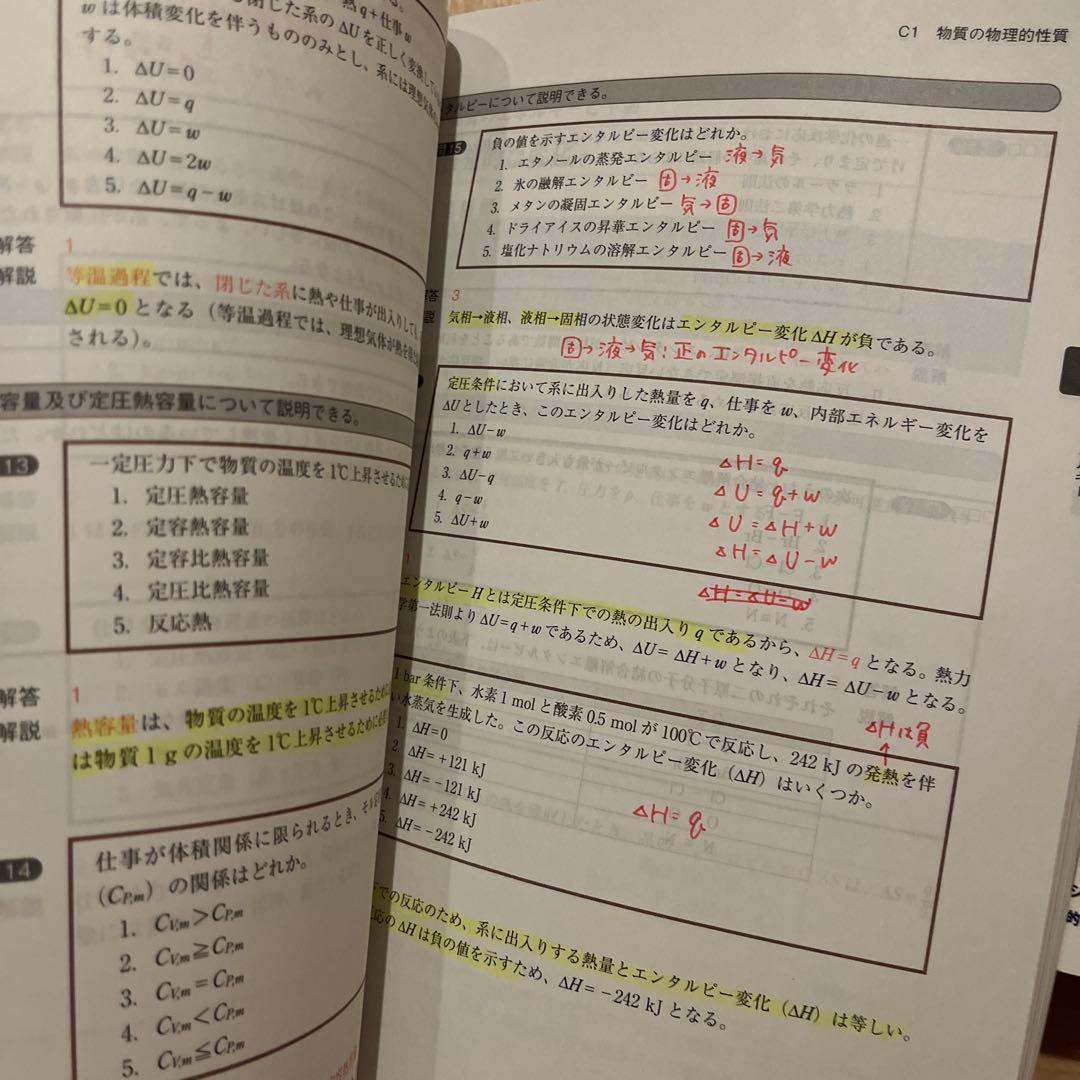 閉じた系の ΔU を正しく変換して
熱 q＋仕事 w
w は体積変化を伴うもののみとし、系には理想気体
する。
1. ΔU＝0
2. ΔU＝q
3. ΔU＝w
4. ΔU＝2w
5. ΔU＝q－w
解答 1
解説 等温過程では、閉じた系に熱や仕事が出入りして
ΔU＝0 となる（等温過程では、理想気体が熱を
される）。
容量及び定圧熱容量について説明できる。
13 一定圧力下で物質の温度を1℃上昇させるために
1. 定圧熱容量
2. 定容熱容量
3. 定容比熱容量
4. 定圧比熱容量
5. 反応熱
解答 1
解説 熱容量は、物質の温度を1℃上昇させるために
は物質1gの温度を1℃上昇させるために必
14 仕事が体積関係に限られるとき、
（CP,m）の関係はどれか。
1. CV,m＞CP,m
2. CV,m≧CP,m
3. CV,m＝CP,m
4. CV,m＜CP,m
5. CV,m≦CP,m
C1 物質の物理的性質
タルピーについて説明できる。
15 負の値を示すエンタルピー変化はどれか。
1. エタノールの蒸発エンタルピー 液→気
2. 氷の融解エンタルピー 固→液
3. メタンの凝固エンタルピー 気→固
4. ドライアイスの昇華エンタルピー 固→気
5. 塩化ナトリウムの溶解エンタルピー 固→液
解答 3
説 気相→液相、液相→固相の状態変化はエンタルピー変化 ΔH が負である。
固→液→気：正のエンタルピー変化
定圧条件において系に出入りした熱量を q、仕事を w、内部エネルギー変化を
ΔU としたとき、このエンタルピー変化はどれか。
1. ΔU－w
2. q＋w
3. ΔU－q
4. q－w
5. ΔU＋w
ΔH＝q
ΔU＝q＋w
ΔU＝ΔH＋w
ΔH＝ΔU－w
ΔH＝ΔU＝w
1
エンタルピー H とは定圧条件下での熱の出入り q であるから、ΔH＝q となる。熱力
学第一法則より ΔU＝q＋w であるため、ΔU＝ΔH＋w となり、ΔH＝ΔU－w となる。
ΔHは負
↑
1 bar 条件下、水素 1 mol と酸素 0.5 mol が 100℃ で反応し、242 kJ の発熱を伴
い水蒸気を生成した。この反応のエンタルピー変化（ΔH）はいくつか。
1. ΔH＝0
2. ΔH＝＋121 kJ
3. ΔH＝－121 kJ
4. ΔH＝＋242 kJ
5. ΔH＝－242 kJ
ΔH＝q
下での反応のため、系に出入りする熱量とエンタルピー変化（ΔH）は等しい。
応の ΔH は負の値を示すため、ΔH＝－242 kJ となる。